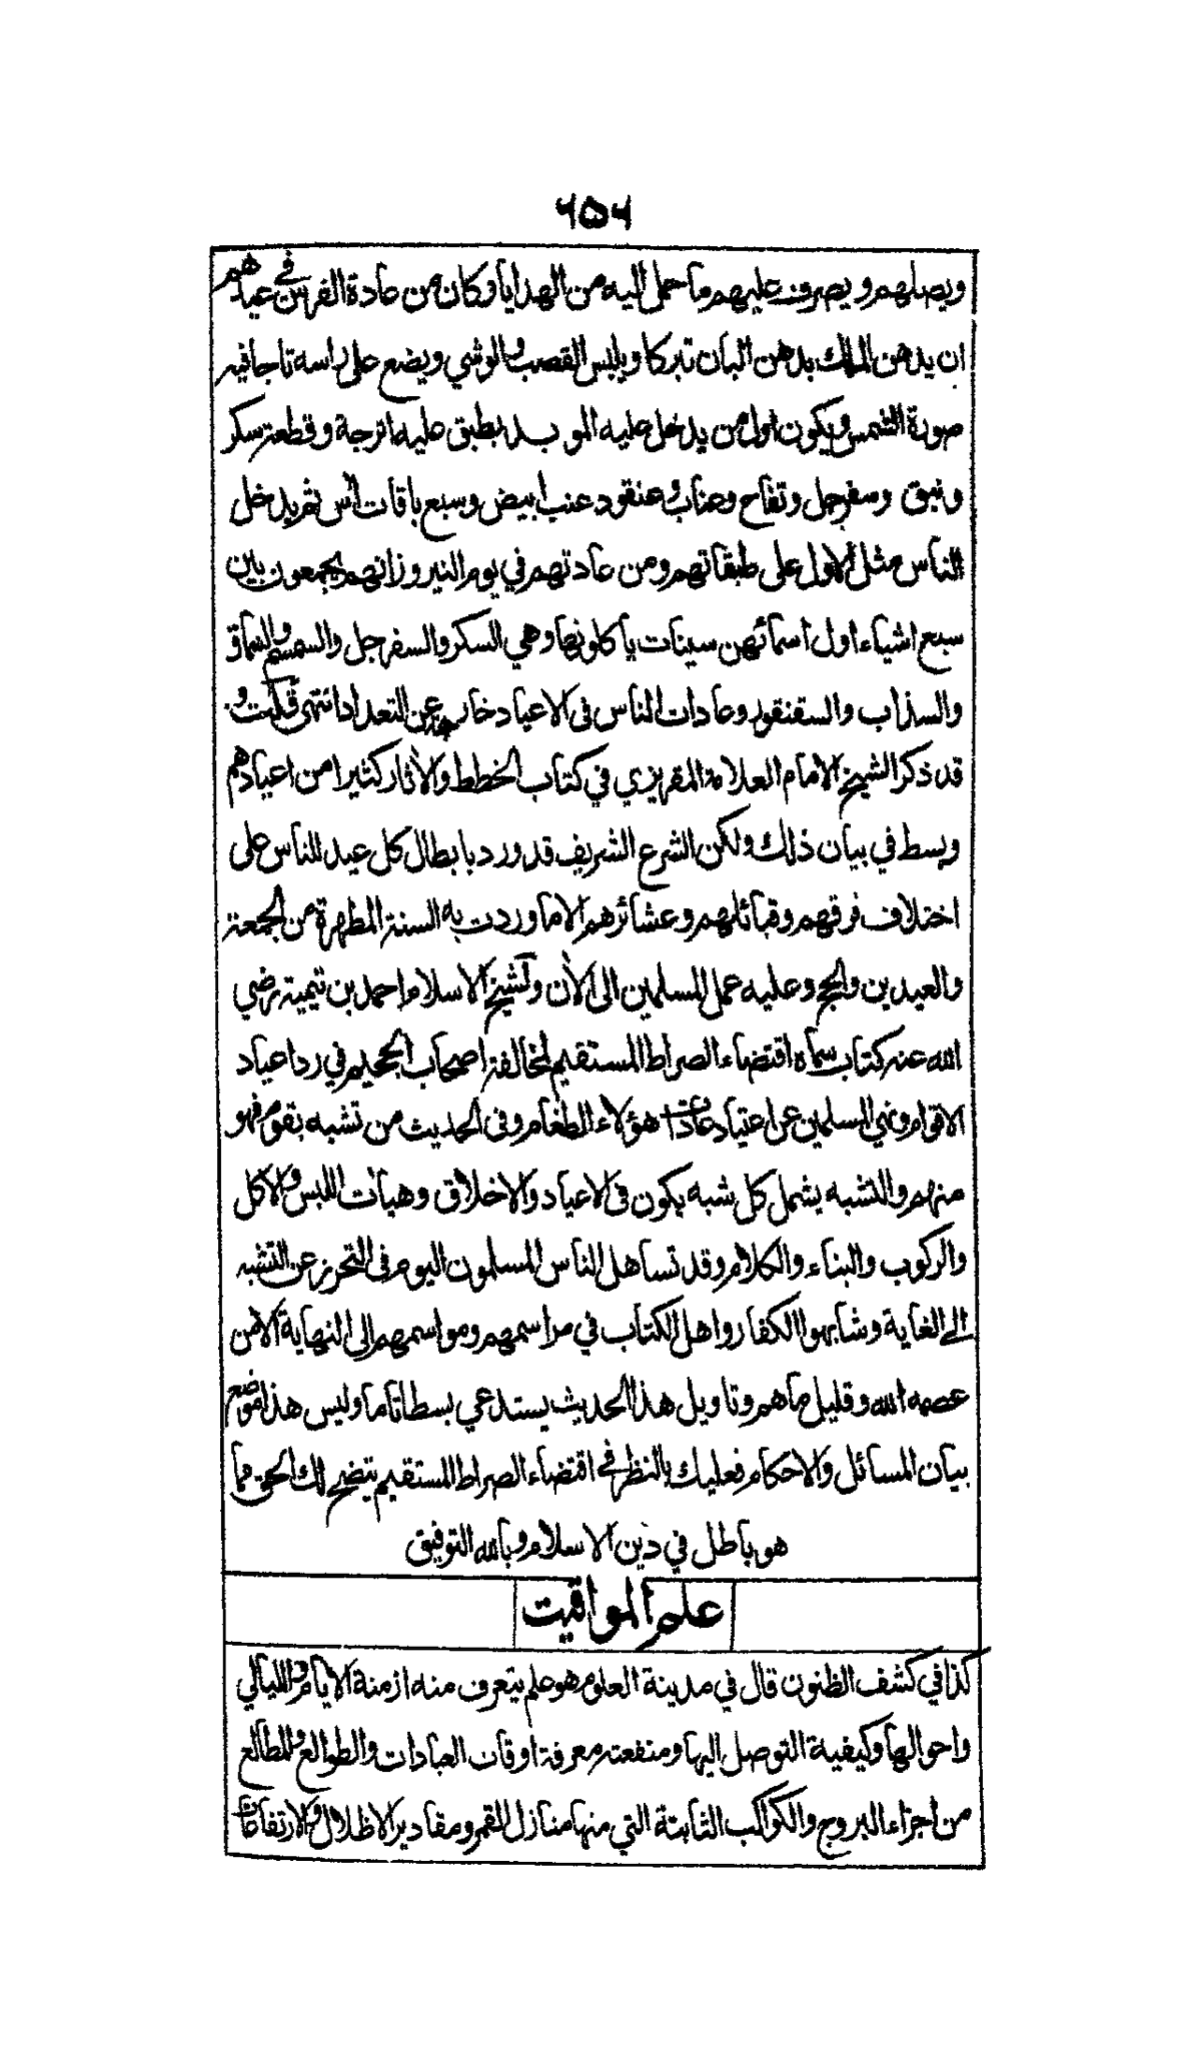 ٦٥٦
ويصلهم ويصرف عليهم ما حمل اليه من الهدايا وكان من عادة الفرس في عيدهم
ان يدهن الملك بدهن البان تبركا ويلبس القصب والوشي ويضع على راسه تاجا فيه
صورة الشمس ويكون اول من يدخل عليه الموبد بطبق عليه اترجة وقطعة سكر
ونبق وسفرجل وتفاح وعناب وعنقود عنب ابيض وسبع باقات اس ثم يدخل
الناس مثل الاول على طبقاتهم ومن عادتهم في يوم النيروز انهم يجمعون بين
سبع اشياء اول اسمائهن سينات ياكلونها وهي السكر والسفرجل والسمسم والسماق
والسذاب والسقنقور وعادات الناس فى الاعياد خارجة عن التعداد انتهى قلت و
قد ذكر الشيخ الامام العلامة المقريزي في كتاب الخطط والآثار كثيرا من اعيادهم
وبسط في بيان ذلك ولكن الشرع الشريف قد ورد بابطال كل عيد للناس على
اختلاف فرقهم وقبائلهم وعشائرهم الا ما وردت به السنة المطهرة من الجمعة
والعيدين والحج وعليه عمل المسلمين الى الآن ولشيخ الاسلام احمد بن تيمية رضي
الله عنه كتاب سماه اقتضاء الصراط المستقيم لمخالفة اصحاب الجحيم في رد اعياد
الاقوام ونهي المسلمين عن اعتياد عادات هؤلاء الطغام وفى الحديث من تشبه بقوم فهو
منهم والتشبه يشمل كل شبه يكون فى الاعياد والاخلاق وهيأت اللبس والاكل
والركوب والبناء والكلام وقد تساهل الناس المسلمون اليوم فى التحرز عن التشبه
الى الغاية وشابهوا الكفار واهل الكتاب في مراسمهم ومواسمهم الى النهاية الا من
عصمه الله وقليل ما هم وتاويل هذا الحديث يستدعي بسطا تاما وليس هذا موضع
بيان المسائل والاحكام فعليك بالنظر في اقتضاء الصراط المستقيم يتضح لك الحق مما
هو باطل في دين الاسلام وبالله التوفيق
علم المواقيت
كذا في كشف الظنون قال في مدينة العلوم هو علم يتعرف منه ازمنة الايام والليالي
واحوالها وكيفية التوصل اليها ومنفعته معرفة اوقات العبادات والطوالع والمطالع
من اجزاء البروج والكواكب الثابتة التي منها منازل القمر ومقادير الاظلال والارتفاعات